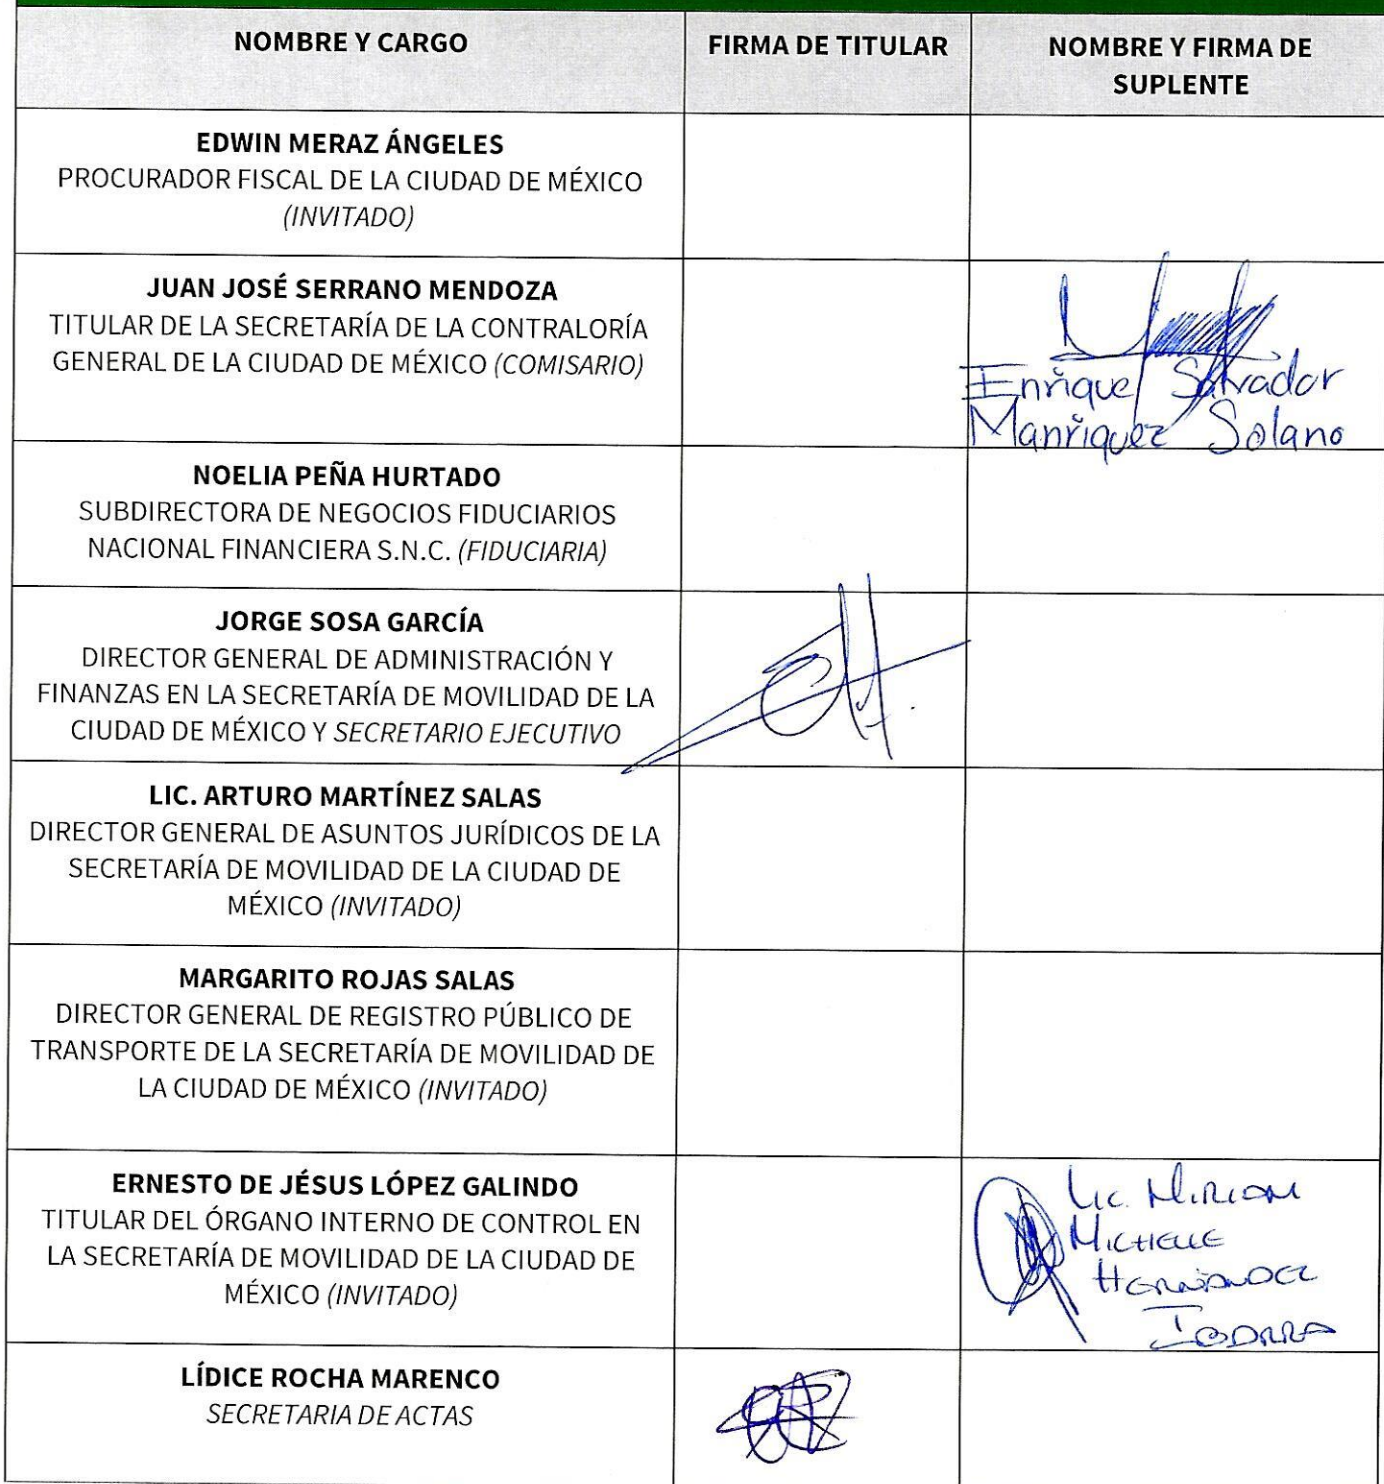 NOMBRE Y CARGO
FIRMA DE TITULAR
NOMBRE Y FIRMA DE
SUPLENTE
EDWIN MERAZ ÁNGELES
PROCURADOR FISCAL DE LA CIUDAD DE MÉXICO
(INVITADO)
JUAN JOSÉ SERRANO MENDOZA
TITULAR DE LA SECRETARÍA DE LA CONTRALORÍA
GENERAL DE LA CIUDAD DE MÉXICO (COMISARIO)
Enrique Salvador
Manriquez Solano
NOELIA PEÑA HURTADO
SUBDIRECTORA DE NEGOCIOS FIDUCIARIOS
NACIONAL FINANCIERA S.N.C. (FIDUCIARIA)
JORGE SOSA GARCÍA
DIRECTOR GENERAL DE ADMINISTRACIÓN Y
FINANZAS EN LA SECRETARÍA DE MOVILIDAD DE LA
CIUDAD DE MÉXICO Y SECRETARIO EJECUTIVO
LIC. ARTURO MARTÍNEZ SALAS
DIRECTOR GENERAL DE ASUNTOS JURÍDICOS DE LA
SECRETARÍA DE MOVILIDAD DE LA CIUDAD DE
MÉXICO (INVITADO)
MARGARITO ROJAS SALAS
DIRECTOR GENERAL DE REGISTRO PÚBLICO DE
TRANSPORTE DE LA SECRETARÍA DE MOVILIDAD DE
LA CIUDAD DE MÉXICO (INVITADO)
ERNESTO DE JÉSUS LÓPEZ GALINDO
TITULAR DEL ÓRGANO INTERNO DE CONTROL EN
LA SECRETARÍA DE MOVILIDAD DE LA CIUDAD DE
MÉXICO (INVITADO)
Lic. Miriam
Michelle
Hernández
LÍDICE ROCHA MARENCO
SECRETARIA DE ACTAS